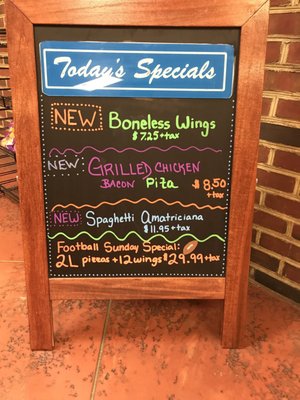 Today's Specials
NEW Boneless Wings
$7.25+tax
NEW GRILLED CHICKEN
BACON Pita $8.50
+tax
NEW Spaghetti Amatriciana
$11.95+tax
Football Sunday Special:
2L pizzas +12wings $29.99+tax